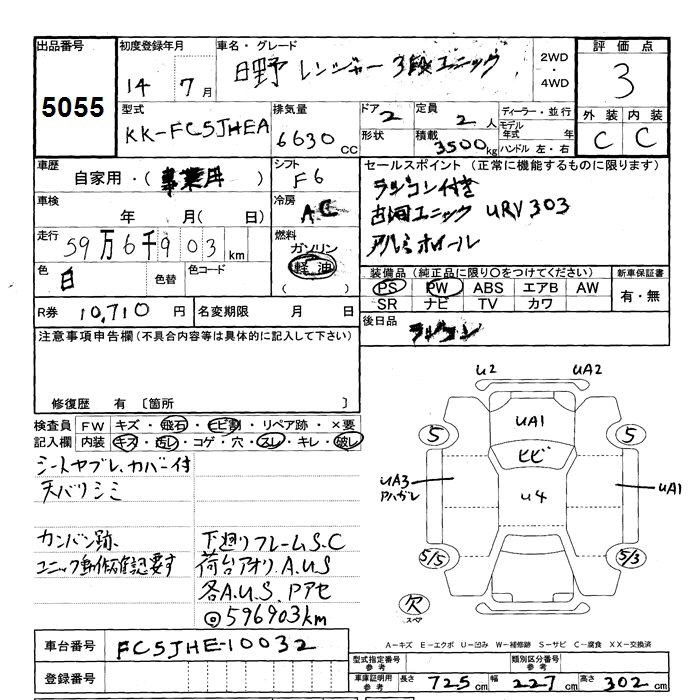 出品番号 初度登録年月 車名・グレード 2WD・4WD 評価点
5055 14年 7月 日野 レンジャー 3段ユニック 3
型式 排気量 ドア 2 定員 2人 ディーラー・並行 外装 内装
KK-FC5JHEA 6630cc 形状 積載 3500kg モデル年式 年 ハンドル 左・右 C C
車歴 自家用・(事業用) シフト F6 セールスポイント (正常に機能するものに限ります)
車検 年 月(日) 冷房 AC ラジコン付き
古河ユニック URV303
走行 59万6千903km 燃料 ガソリン 軽油 アルミホイール
色 白 色替 色コード 装備品(純正品に限り○をつけてください) 新車保証書
PS PW ABS エアB AW 有・無
SR ナビ TV カワ
R券 10,710円 名変期限 月 日 後日品 ラジコン
注意事項申告欄(不具合内容等は具体的に記入して下さい)
修復歴 有 〔箇所 〕
検査員 FW キズ・飛石・ヒビ割・リペア跡・×要
記入欄 内装 キズ・汚レ・コゲ・穴・スレ・キレ・破レ
シートヤブレ、カバー付
天バリシミ
カンバン跡、 下廻りフレームS.C
ユニック動作確認要す 荷台アオリ.A.U.S
各A.U.S.Pアセ
◎596903km
U2 UA2
UA1
5 5
ヒビ
UA3 アハガレ U4 UA1
5/5 5/3
欠
スペア
A-キズ E-エクボ U-凹み W-補修跡 S-サビ C-腐食 XX-交換済
車台番号 FC5JHE-10032
型式指定番号 参考 類別区分番号 参考
登録番号 車庫証明用 参考 長さ 725cm 幅 227cm 高さ 302cm